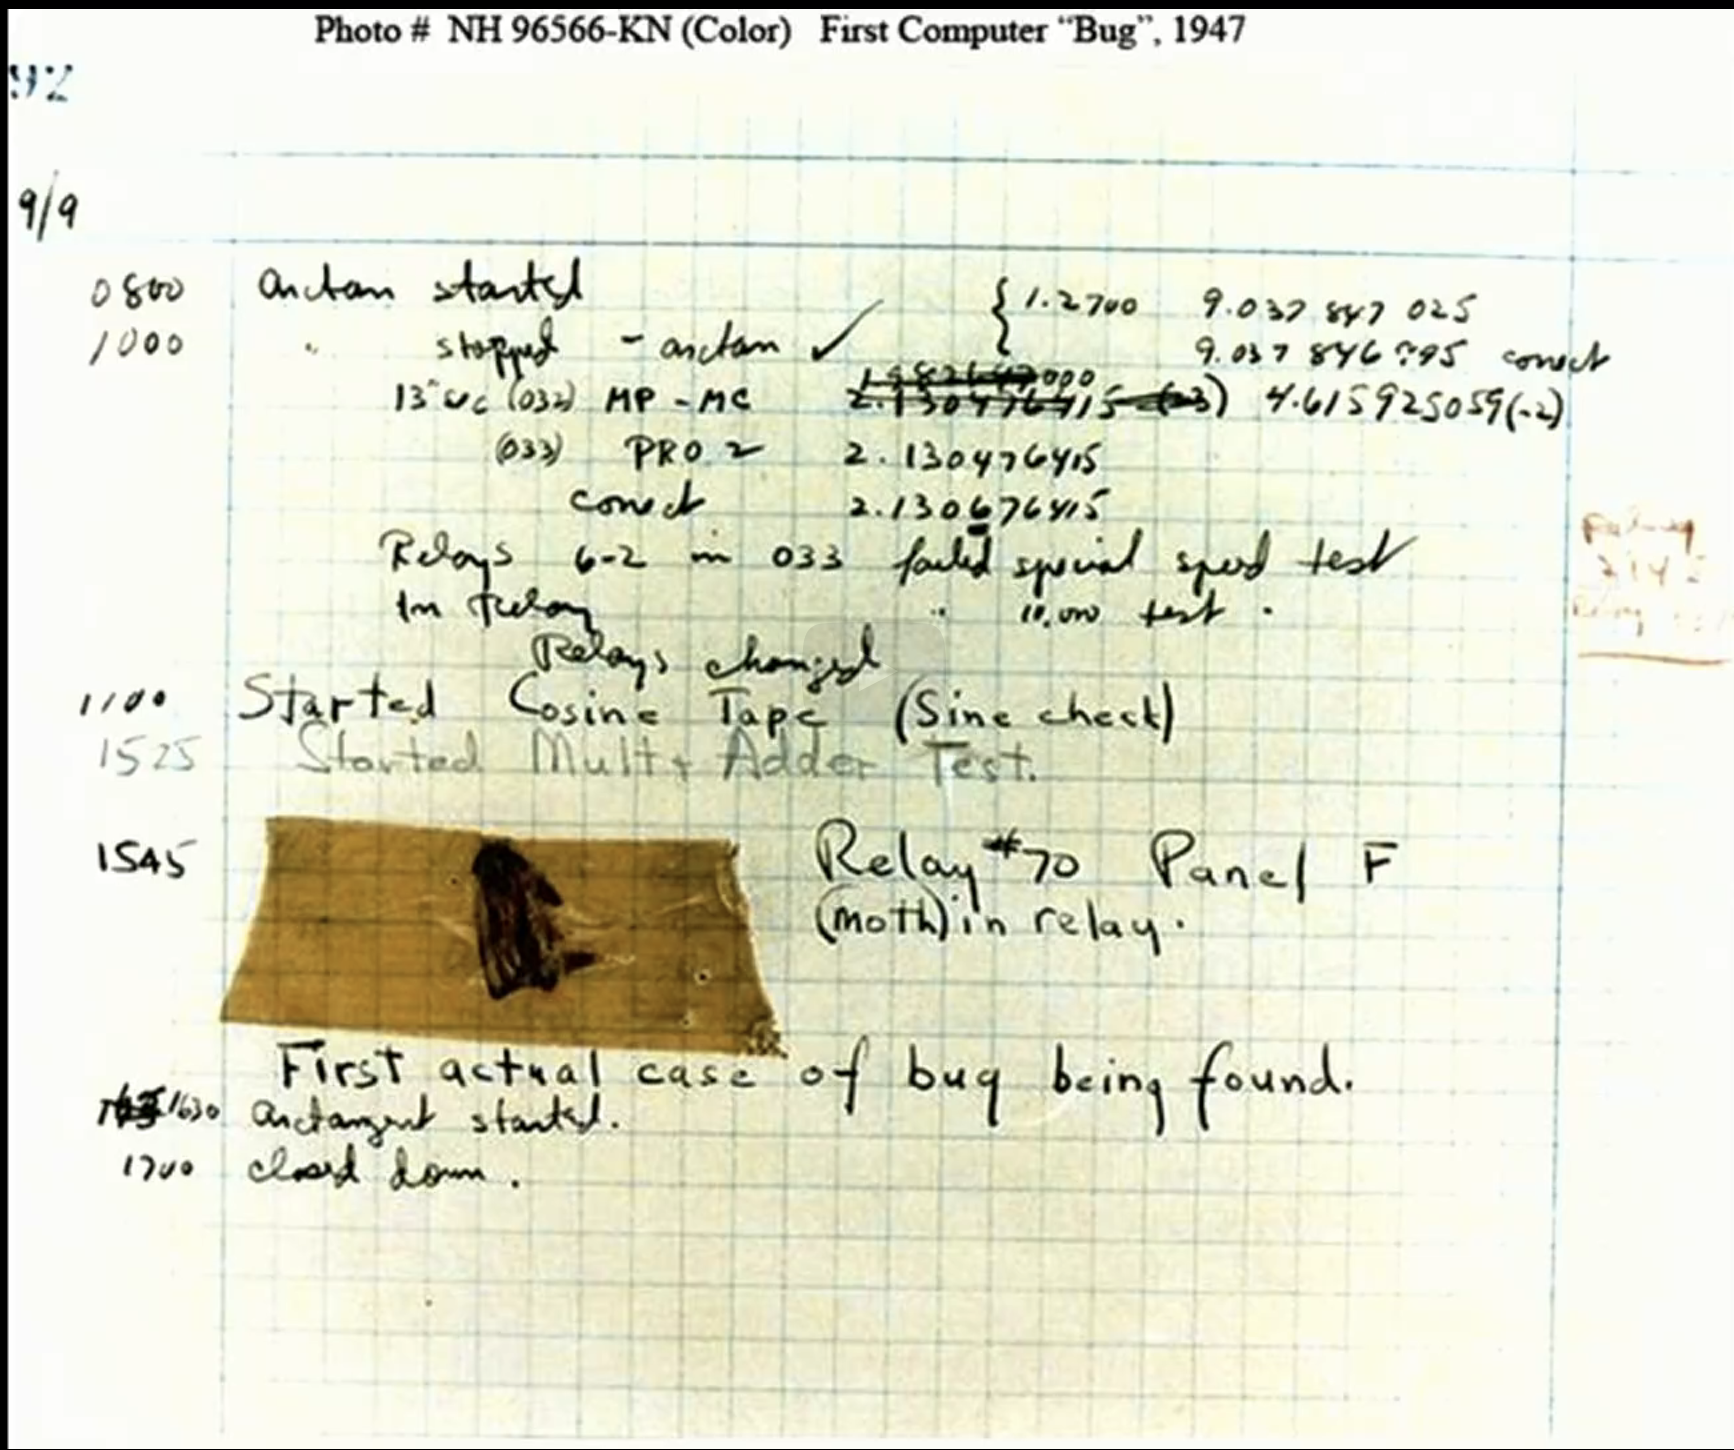 Photo # NH 96566-KN (Color) First Computer “Bug”, 1947
92
9/9
0800 Arctan started { 1.2700 9.037 847 025
1000 " stopped - arctan ✓ 9.037 846 795 correct
(032) MP - MC 2.130476415 (-3) 4.615925059(-2)
(033) PRO 2 2.130476415
correct 2.130676415
Relays 6-2 in 033 failed special speed test
In Relay " 11,000 test .
Relays changed
1100 Started Cosine Tape (Sine check)
1525 Started Mult + Adder Test.
1545 Relay #70 Panel F
(moth) in relay.
First actual case of bug being found.
1630 Arctangent started.
1700 closed down.
Relay